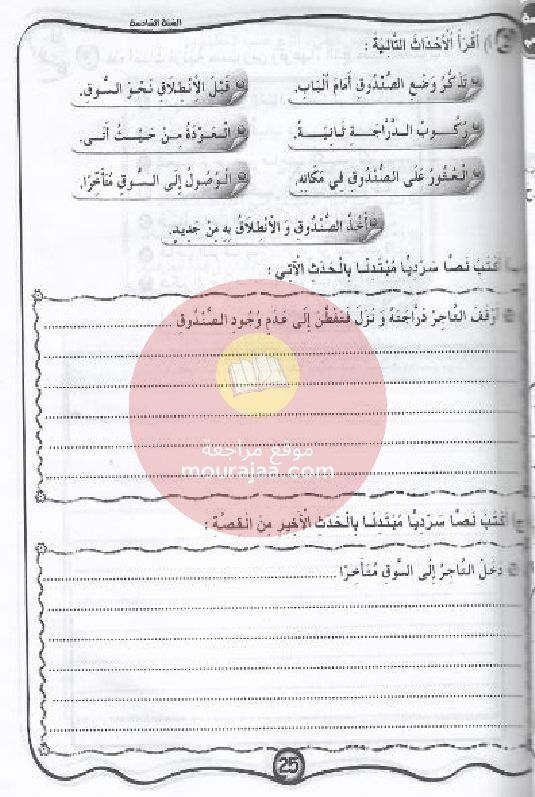 السنة السادسة
أ) أَقْرَأُ الْأَحْدَاثَ التَّالِيَةَ :
تَذَكُّرُ وَضْعِ الصُّنْدُوقِ أَمَامَ الْبَابِ.
قَبْلَ الْاِنْطِلَاقِ نَحْوَ السُّوقِ.
رُكُوبُ الدَّرَّاجَةِ ثَانِيَةً.
الْعَوْدَةُ مِنْ حَيْثُ أَتَى.
الْعُثُورُ عَلَى الصُّنْدُوقِ فِي مَكَانِهِ.
الْوُصُولُ إِلَى السُّوقِ مُتَأَخِّرًا.
أَخْذُ الصُّنْدُوقِ وَ الْاِنْطِلَاقُ بِهِ مِنْ جَدِيدٍ.
أَكْتُبُ نَصًّا سَرْدِيًّا مُبْتَدِئًا بِالْحَدَثِ الْآتِي :
أَوْقَفَ التَّاجِرُ دَرَّاجَتَهُ وَ نَزَلَ فَتَفَطَّنَ إِلَى عَدَمِ وُجُودِ الصُّنْدُوقِ
موقع مراجعة
mourajaa.com
أَكْتُبُ نَصًّا سَرْدِيًّا مُبْتَدِئًا بِالْحَدَثِ الْأَخِيرِ مِنَ الْقِصَّةِ :
دَخَلَ التَّاجِرُ إِلَى السُّوقِ مُتَأَخِّرًا
25